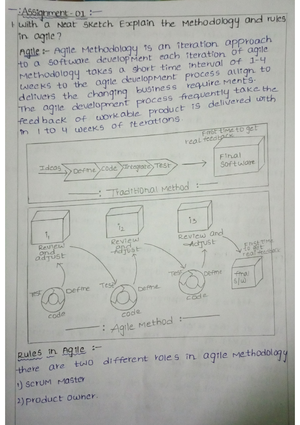 :Assignment-01:-
1. with a Neat Sketch Explain the Methodology and rules
in agile?
Agile:- Agile Methodology is an iteration approach
to a software development each iteration of agile
Methodology takes a short time interval of 1-4
weeks to the agile development process align to
delivers the changing business requirements.
The agile development process frequently take the
feedback of workable product is delivered with
in 1 to 4 weeks of iterations
First time to get
real feedback
Ideas Define Code Integrate Test
Final
Software
: Traditional Method :-
i1 i2 i3
Review and adjust
Review and adjust
Review and adjust
First time to get real feedback
Test Define Test Define Test Define
final
S/W
code code code
: Agile Method :-
Rules in Agile :-
there are two different roles in agile Methodology
1) SCRUM Master
2) Product Owner.